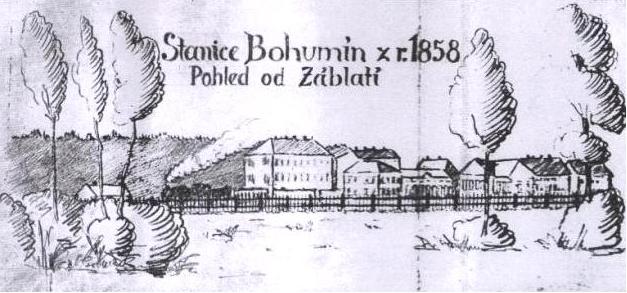 Stanice Bohumin z r. 1858
Pohled od Záblatí